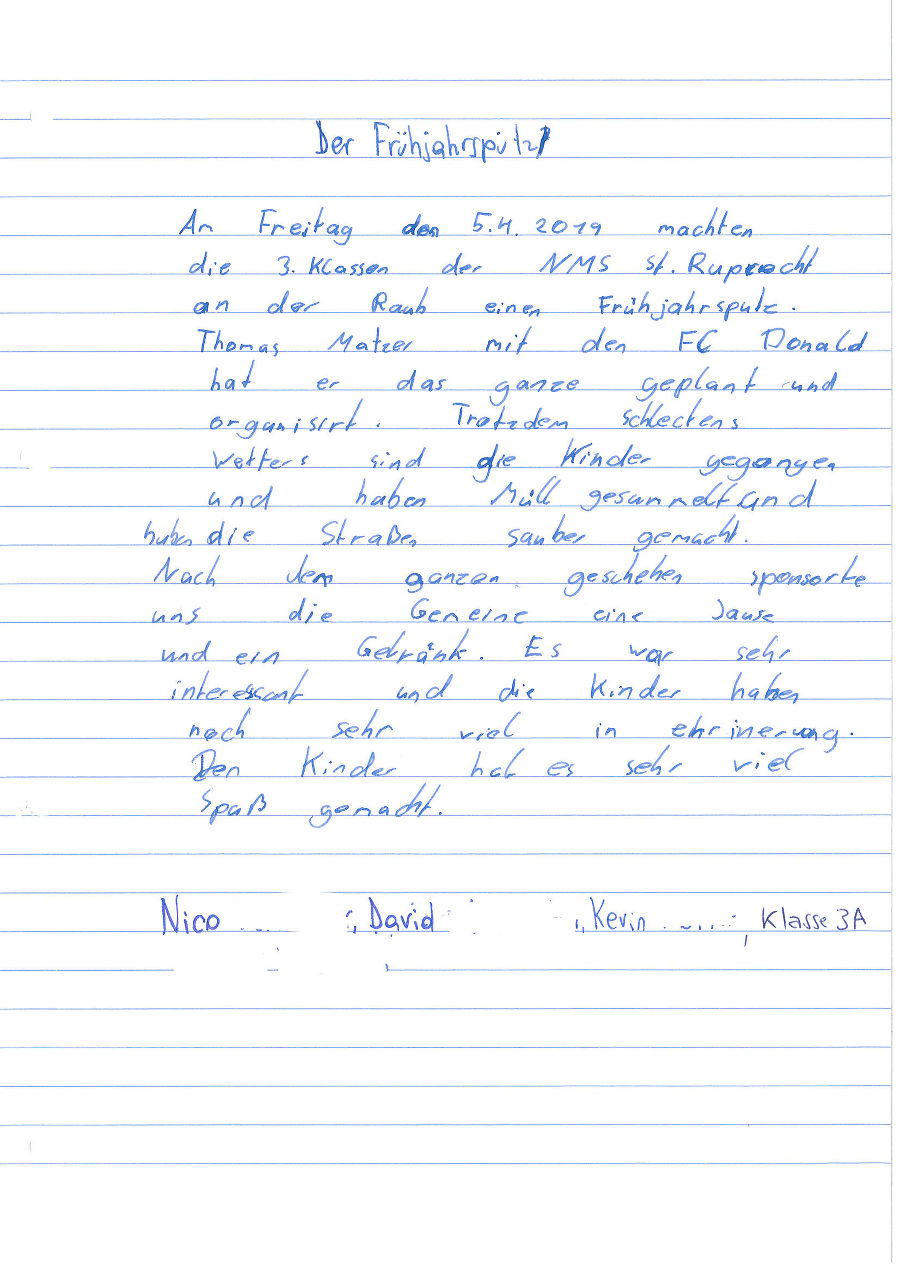 Der Frühjahrsputz
Am Freitag den 5.4. 2019 machten
die 3. Klassen der NMS St. Ruprecht
an der Raab einen Frühjahrsputz.
Thomas Matzer mit den FC Donald
hat er das ganze geplant und
organisirt. Trotzdem schlectens
Wetters sind die Kinder gegangen
und haben Müll gesammelt und
haben die Straßen sauber gemacht.
Nach dem ganzen geschehen sponsorte
uns die Gemeine eine Jause
und ein Getränk. Es war sehr
interessant und die Kinder haben
noch sehr viel in ehrinerung.
Den Kinder hat es sehr viel
Spaß gemacht.
Nico , David , Kevin , Klasse 3A